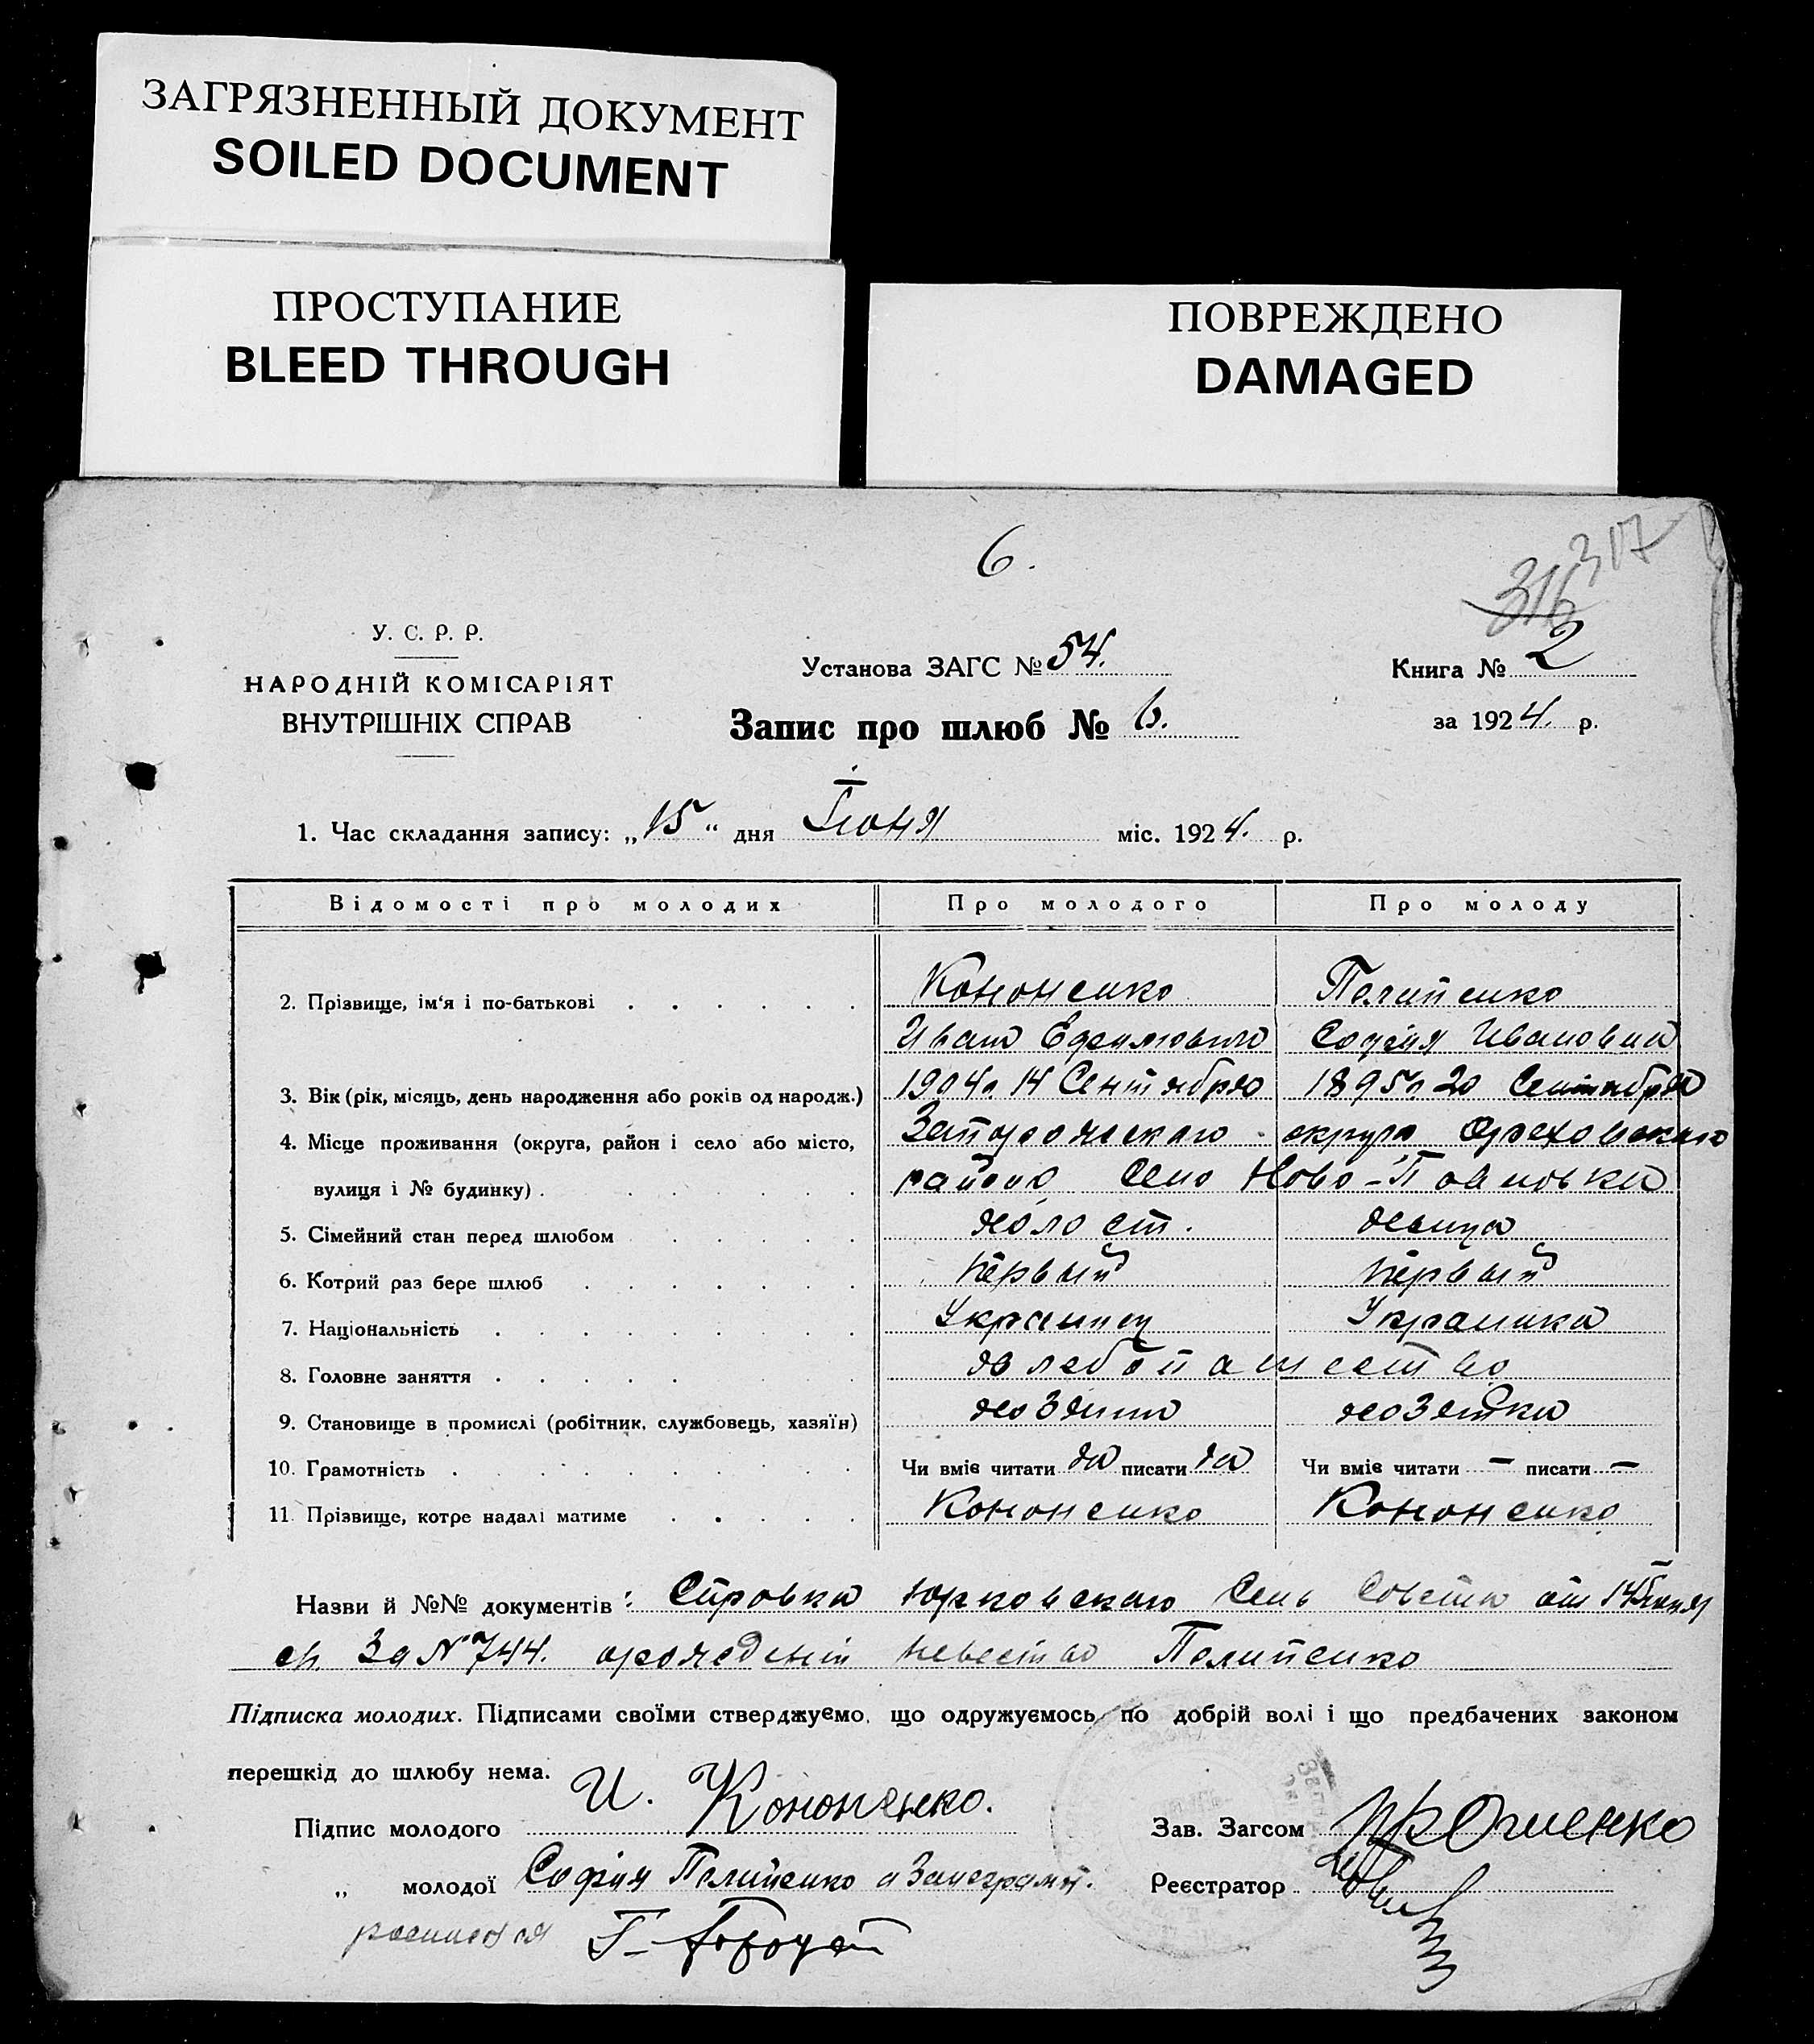 ЗАГРЯЗНЕННЫЙ ДОКУМЕНТ
SOILED DOCUMENT
ПРОСТУПАНИЕ
BLEED THROUGH
ПОВРЕЖДЕНО
DAMAGED
6.
317
316
У. С. Р. Р.
НАРОДНІЙ КОМІСАРІЯТ
ВНУТРІШНІХ СПРАВ
Установа ЗАГС № 54.
Запис про шлюб № 6.
Книга № 2
за 1924. р.
1. Час складання запису: „15“ дня Іюня міс. 1924. р.
Відомості про молодих Про молодого Про молоду
2. Прізвище, ім'я і по-батькові Кононенко Пелипенко
Иван Ефимович София Ивановна
3. Вік (рік, місяць, день народження або років од народж.) 1904 г. 14 Сентября 1895 г. 20 Сентября
4. Місце проживання (округа, район і село або місто, Запорожского округа Ореховского
вулиця і № будинку). района Село Ново-Павловка
5. Сімейний стан перед шлюбом холост. девица
6. Котрий раз бере шлюб первый первый
7. Національність Украинец Украинка
8. Головне заняття хлебопашество
9. Становище в промислі (робітник, службовець, хазяїн) хозяин хозяйка
10. Грамотність Чи вміє читати да писати да Чи вміє читати — писати —
11. Прізвище, котре надалі матиме Кононенко Кононенко
Назви й №№ документів: Справка Юрковского Сель Совета от 14 Іюня
За № 744. о рождении невесты Пелипенко
Підписка молодих. Підписами своїми стверджуємо, що одружуємось по добрій волі і що предбачених законом
перешкід до шлюбу нема.
Підпис молодого И. Кононенко.
Зав. Загсом
„ молодої София Пелипенко а За неграмот.
Реєстратор
росписался